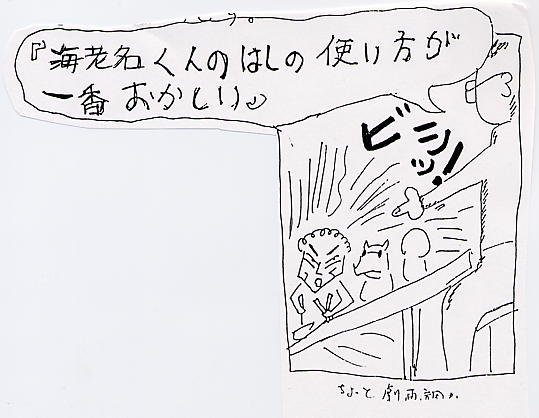 『海老名くんのはしの使い方が
一番おかしい』
ビシッ!
ちょっと劇画調。